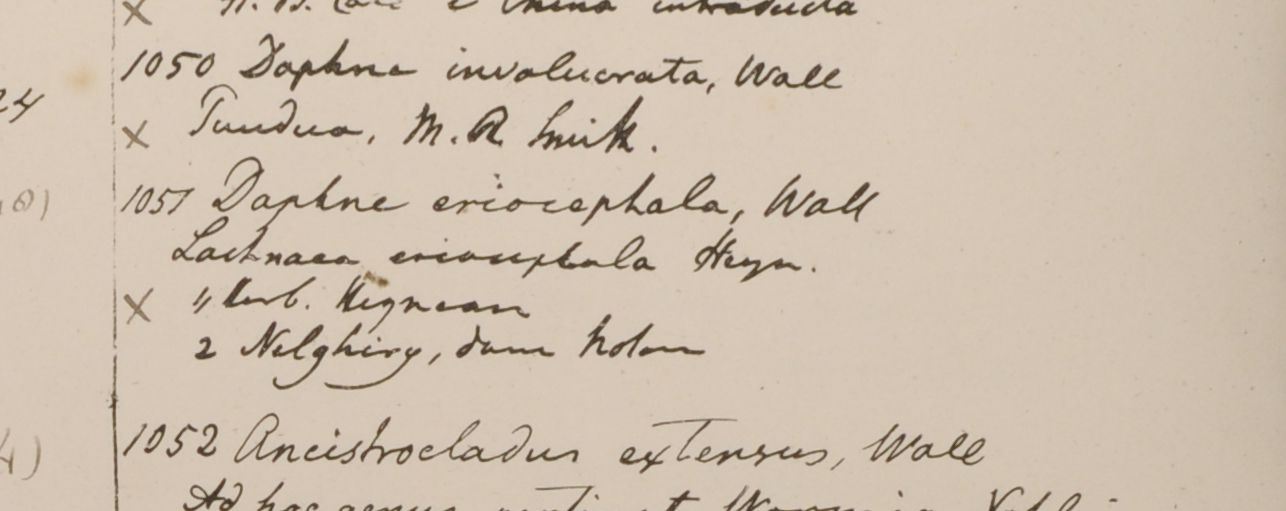 H. B. Calc e China introducta
1050 Daphne involucrata, Wall
24 × Tundua, M. R. Smith.
1051 Daphne eriocephala, Wall
Lachnaea eriocephala Heyn.
× 1, Herb. Heynean
2 Nilghiry, dom Noton
4) 1052 Ancistrocladus extensus, Wall
Ad hoc genus et Wormia Vahlii